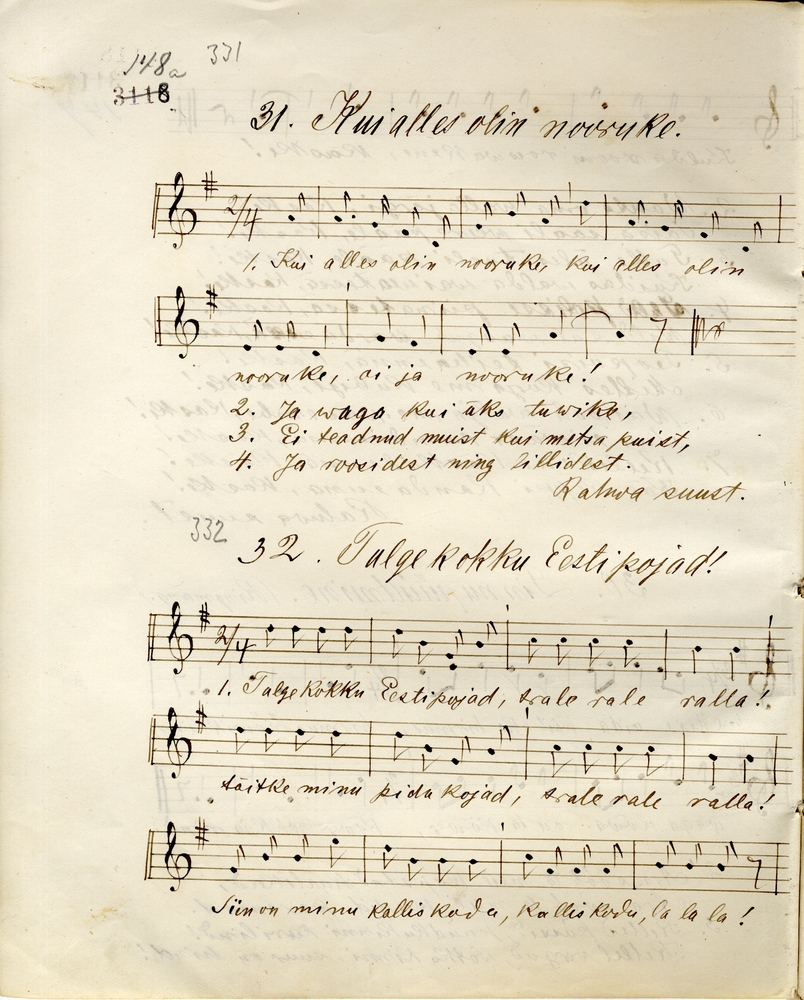 148a 331
3118
31. Kui alles olin nooruke.
2/4
1. Kui alles olin nooruke, kui alles olin
nooruke, oi ja nooruke!
2. Ja waga kui üks tuwike,
3. Ei teadnud muist kui metsa puist,
4. Ja roosidest ning lillidest.
Rahwa suust.
332
32. Tulge kokku Eesti pojad!
2/4
1. Tulge kokku Eesti pojad, trale rale ralla!
täitke minu pidu kojad, trale rale ralla!
Siin on minu kallis kodu, kallis kodu, la la la!